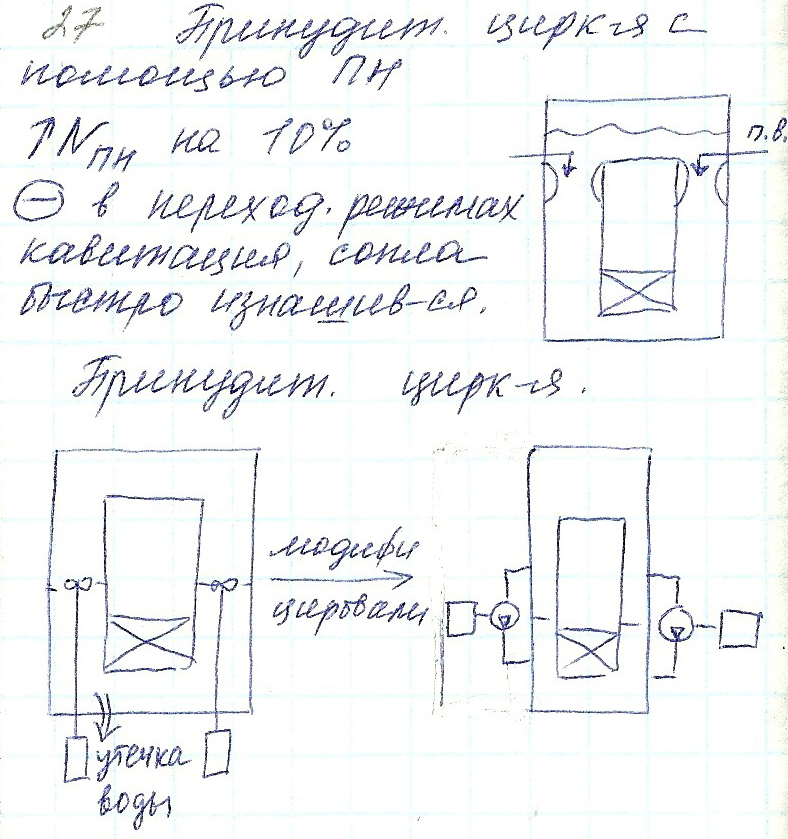 27 Принудит. цирк-я с
помощью ПН
↑N ПН на 10%
п.в.
⊖ в переход. режимах
кавитация, сопла
быстро изнашив-ся.
Принудит. цирк-я.
модифи
цировали
утечка
воды